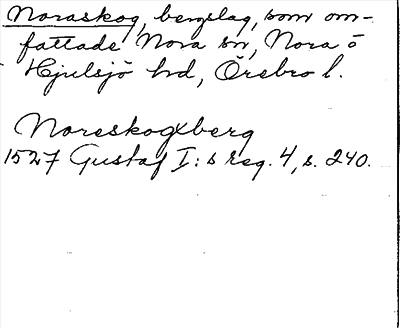 Noraskog, bergslag, som om-
fattade Nora sn, Nora o
Hjulsjö hd, Örebro l.
Noreskogxberg
1527 Gustaf I:s reg. 4, s. 240.